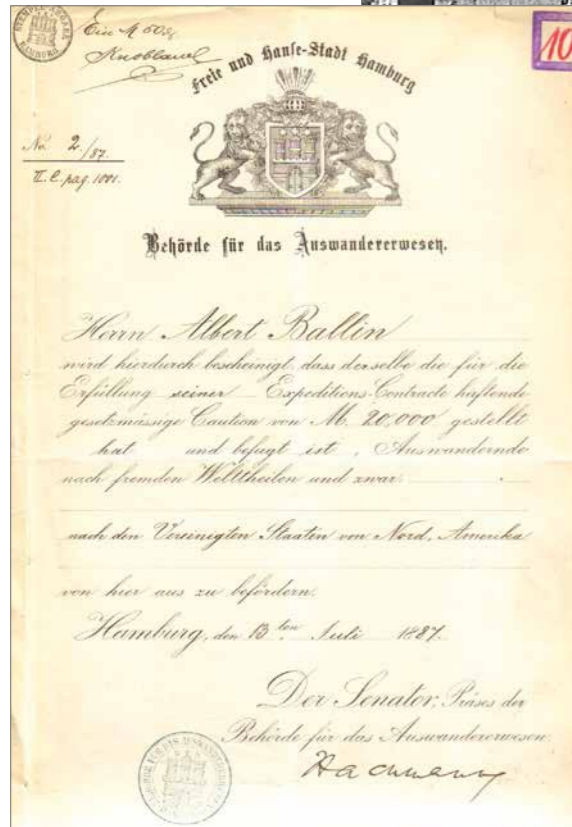 STEMPEL-ABGABE HAMBURG
Ein M 50 Pf
10
Freie und Hanse-Stadt Hamburg
No. 2./87.
II. C. pag. 1001.
Behörde für das Auswandererwesen.
Herrn Albert Ballin
wird hierdurch bescheinigt, dass derselbe die für die
Erfüllung seiner Expeditions-Contracte haftende
gesetzmässige Caution von M. 20,000 gestellt
hat und befugt ist, Auswandernde
nach fremden Welttheilen und zwar
nach den Vereinigten Staaten von Nord-Amerika
von hier aus zu befördern.
Hamburg, den 13ten Juli 1887.
Der Senator, Präses der
Behörde für das Auswandererwesen.
Hachmann